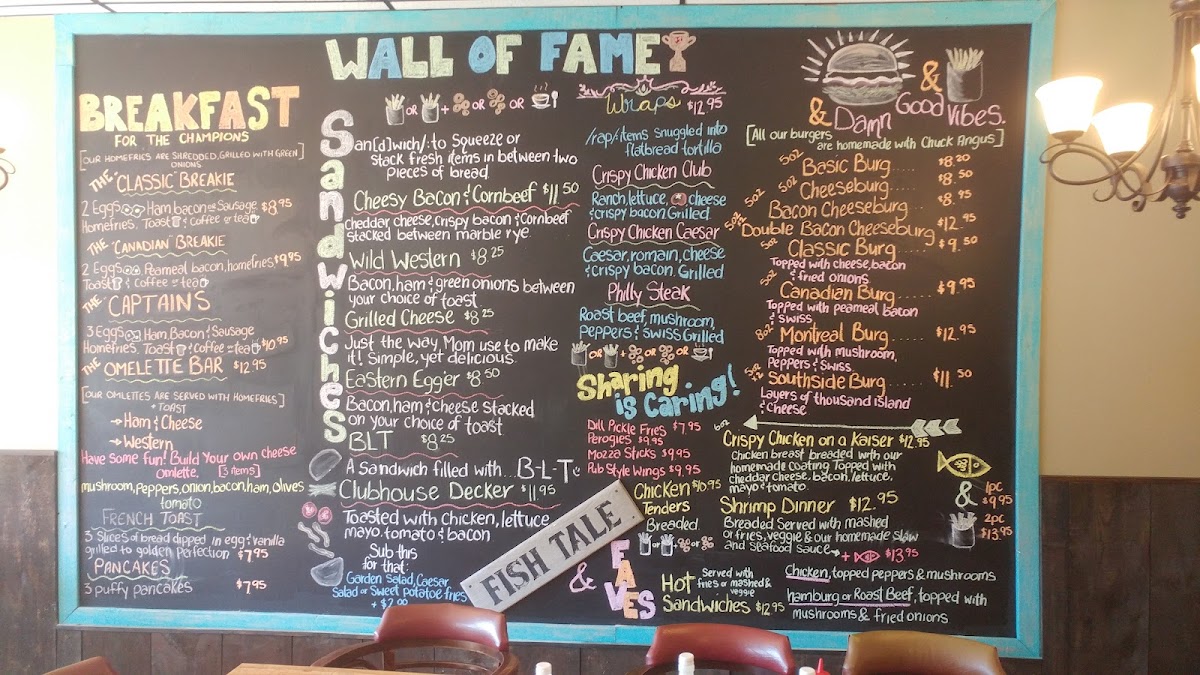 WALL OF FAME
BREAKFAST
FOR THE CHAMPIONS
[OUR HOMEFRIES ARE SHREDDED, GRILLED WITH GREEN
ONIONS]
THE "CLASSIC" BREAKIE
2 Eggs Ham bacon or Sausage $8.95
Homefries, Toast & Coffee or tea
THE "CANADIAN" BREAKIE
2 Eggs Peameal bacon, homefries, $9.95
Toast & Coffee or tea
THE "CAPTAINS
3 Eggs Ham, Bacon & Sausage
Homefries, Toast & Coffee or tea $10.95
THE "OMELETTE BAR $12.95
[OUR OMLETTES ARE SERVED WITH HOMEFRIES]
+ TOAST
→ Ham & Cheese
→ Western
Have some fun! Build Your own cheese
Omlette. [3 items]
mushroom, Peppers, onion, bacon, ham, Olives
tomato
FRENCH TOAST
3 Slices of bread dipped in egg & vanilla
grilled to golden Perfection $7.95
PANCAKES
3 puffy pancakes $7.95
Sandwiches
OR + OR OR
San[d]wich/: to Squeeze or
stack fresh items in between two
pieces of bread
Cheesy Bacon & Cornbeef $11.50
Cheddar cheese, crispy bacon & Cornbeef
stacked between marble rye
Wild Western $8.25
Bacon, ham & green onions between
your choice of toast
Grilled Cheese $8.25
Just the way Mom use to make
it! Simple, yet delicious.
Eastern Egger $8.50
Bacon, ham & cheese stacked
on your choice of toast
BLT $8.25
A sandwich filled with...B-L-T
Clubhouse Decker $11.95
Toasted with Chicken, lettuce
mayo, tomato & bacon
Sub this
for that:
Garden Salad, Caesar
Salad or Sweet potatoe fries
+ $2.99
Wraps $12.95
/rap/: items snuggled into
flatbread tortilla
Crispy Chicken Club
Ranch, lettuce, cheese
& crispy bacon. Grilled
Crispy Chicken Caesar
Caesar, romain, cheese
& crispy bacon. Grilled
Philly Steak
Roast beef, mushroom,
Peppers & Swiss Grilled
OR + OR OR
Sharing
is Caring!
Dill Pickle Fries $7.95
Perogies $9.95
Mozza Sticks $9.95
Pub Style Wings $9.95
Chicken $10.95
Tenders
Breaded.
OR +
FISH TALE
& FAVES
HOT Served with
fries or mashed &
veggie
Sandwiches $12.95
& &
Damn Good Vibes.
[All our burgers
are homemade with Chuck Angus]
5oz Basic Burg..... $8.20
5oz Cheeseburg..... $8.50
5oz Bacon Cheeseburg..... $8.95
5oz Double Bacon Cheeseburg $12.95
5oz Classic Burg..... $9.50
Topped with cheese, bacon
& fried onions
5oz Canadian Burg...... $9.95
Topped with peameal bacon
& Swiss
8oz Montreal Burg..... $12.95
Topped with mushroom,
Peppers & Swiss
Southside Burg...... $11.50
Layers of thousand island
& Cheese
6oz Crispy Chicken on a Kaiser $12.95
Chicken breast breaded with our
homemade coating Topped with
cheddar cheese, bacon, lettuce,
mayo & tomato.
Shrimp Dinner $12.95
Breaded Served with mashed
or fries, veggie & our homemade slaw
and seafood sauce + $13.95
&
1pc
$9.95
2pc
$13.95
Chicken, topped peppers & mushrooms
hamburg or Roast Beef, topped with
mushrooms & fried onions